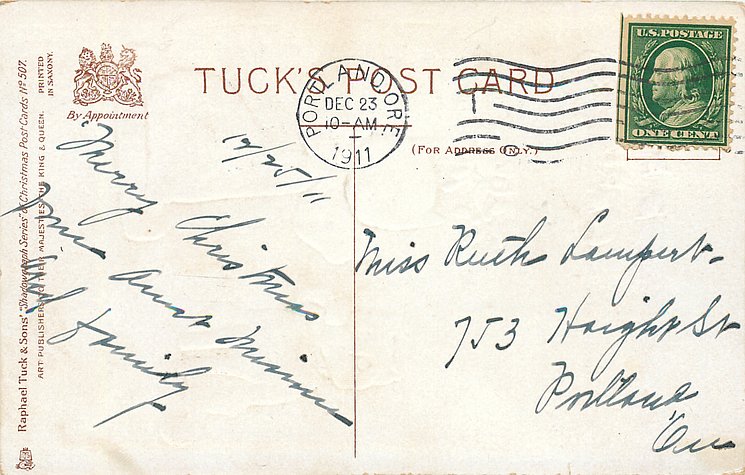 TUCK'S POST CARD
By Appointment
(FOR ADDRESS ONLY.)
PORTLAND ORE
DEC 23
10-AM
1911
U.S.POSTAGE
ONE CENT
Raphael Tuck & Sons' "Shadowgraph Series" of Christmas Post Cards Nº 507.
ART PUBLISHERS TO THEIR MAJESTIES THE KING & QUEEN.
PRINTED
IN SAXONY.
12/25/11
Merry Christmas
from Aunt Minnie
and family
Miss Ruth Lampert.
753 Haight St
Portland
Ore